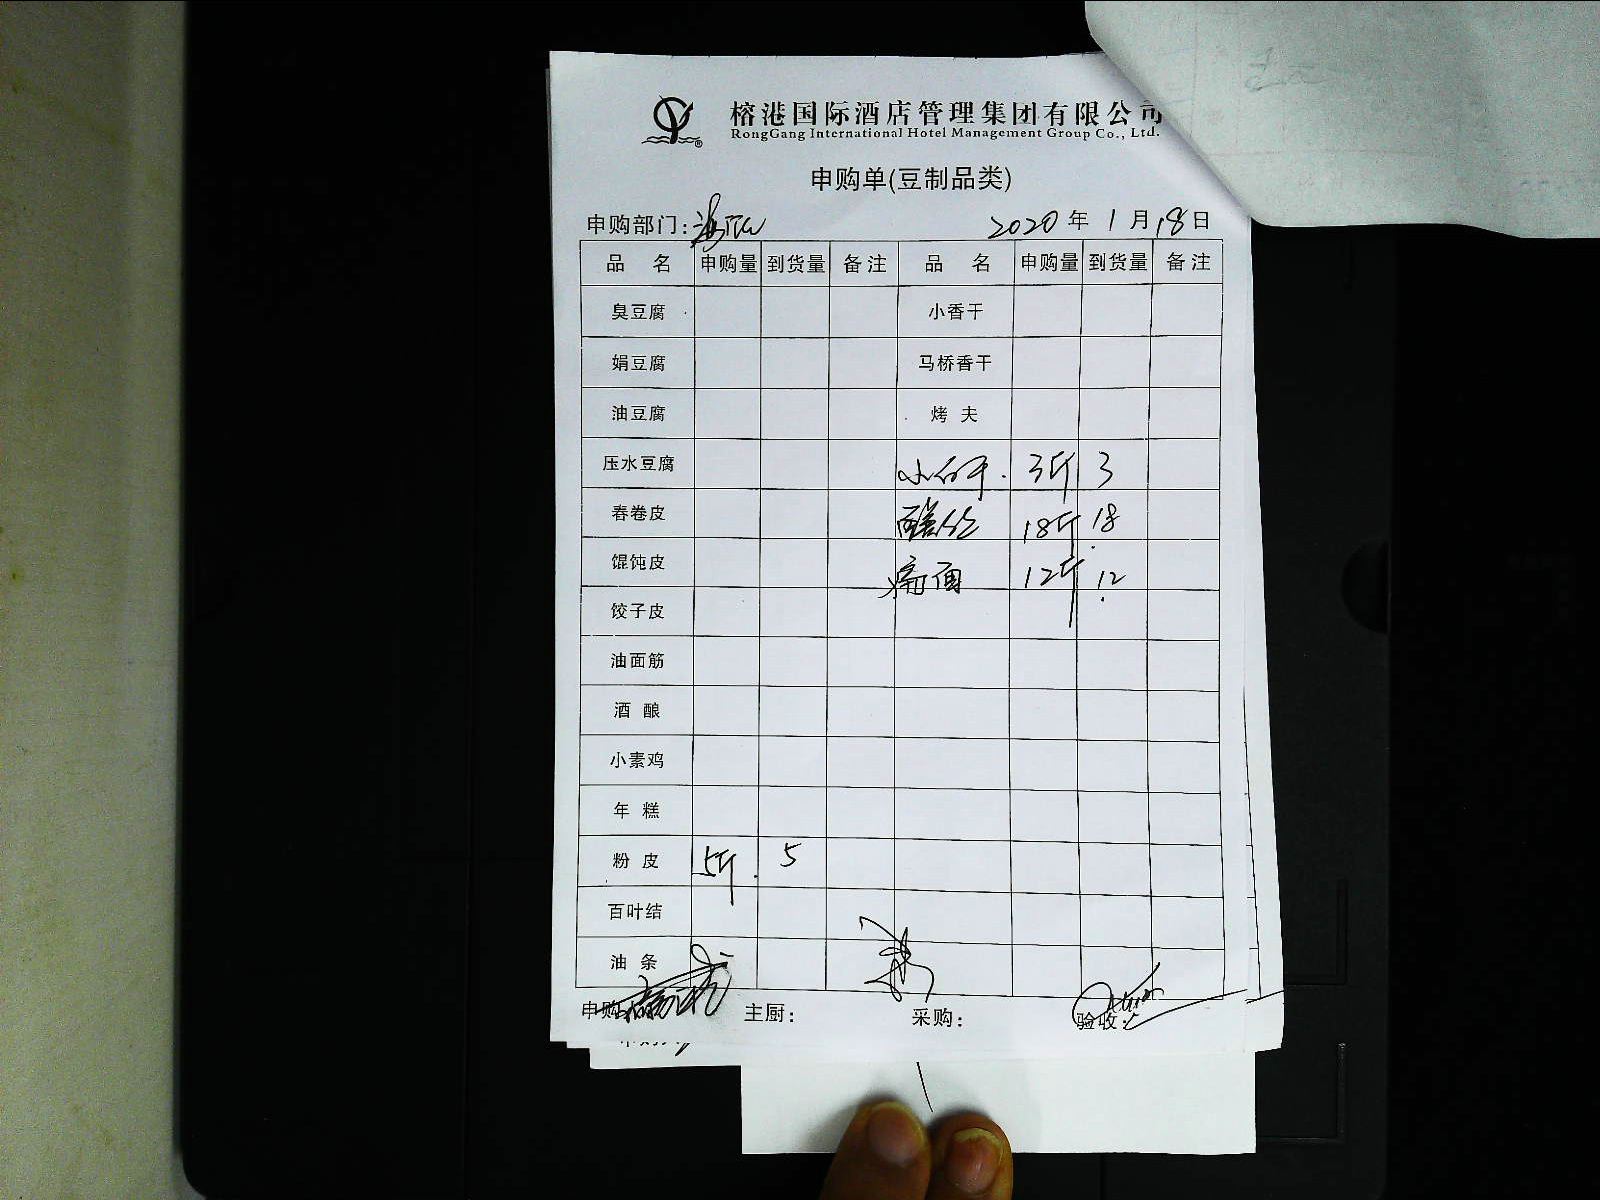 榕港国际酒店管理集团有限公司
RongGang International Hotel Management Group Co., Ltd.
申购单(豆制品类)
申购部门: 2020 年 1 月 18 日
品 名 申购量 到货量 备注 品 名 申购量 到货量 备注
臭豆腐 小香干
娟豆腐 马桥香干
油豆腐 烤 夫
压水豆腐 小白干 3斤 3
春卷皮 18斤 18
馄饨皮 面 12斤 12
饺子皮
油面筋
酒 酿
小素鸡
年 糕
粉 皮 5斤 5
百叶结
油 条
申购 主厨: 采购: 验收: